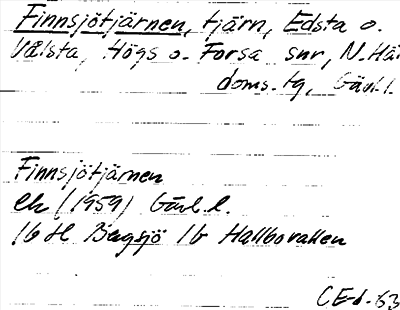 Finnsjötjärnen, tjärn, Edsta o.
Välsta, Högs o. Forsa snr, N. Häl
doms. tg, Gävl. l.
Finnsjötjärnen
ek (1959) Gävl. l.
16 H Bergsjö 1b Hallbovallen
CE-d. -63